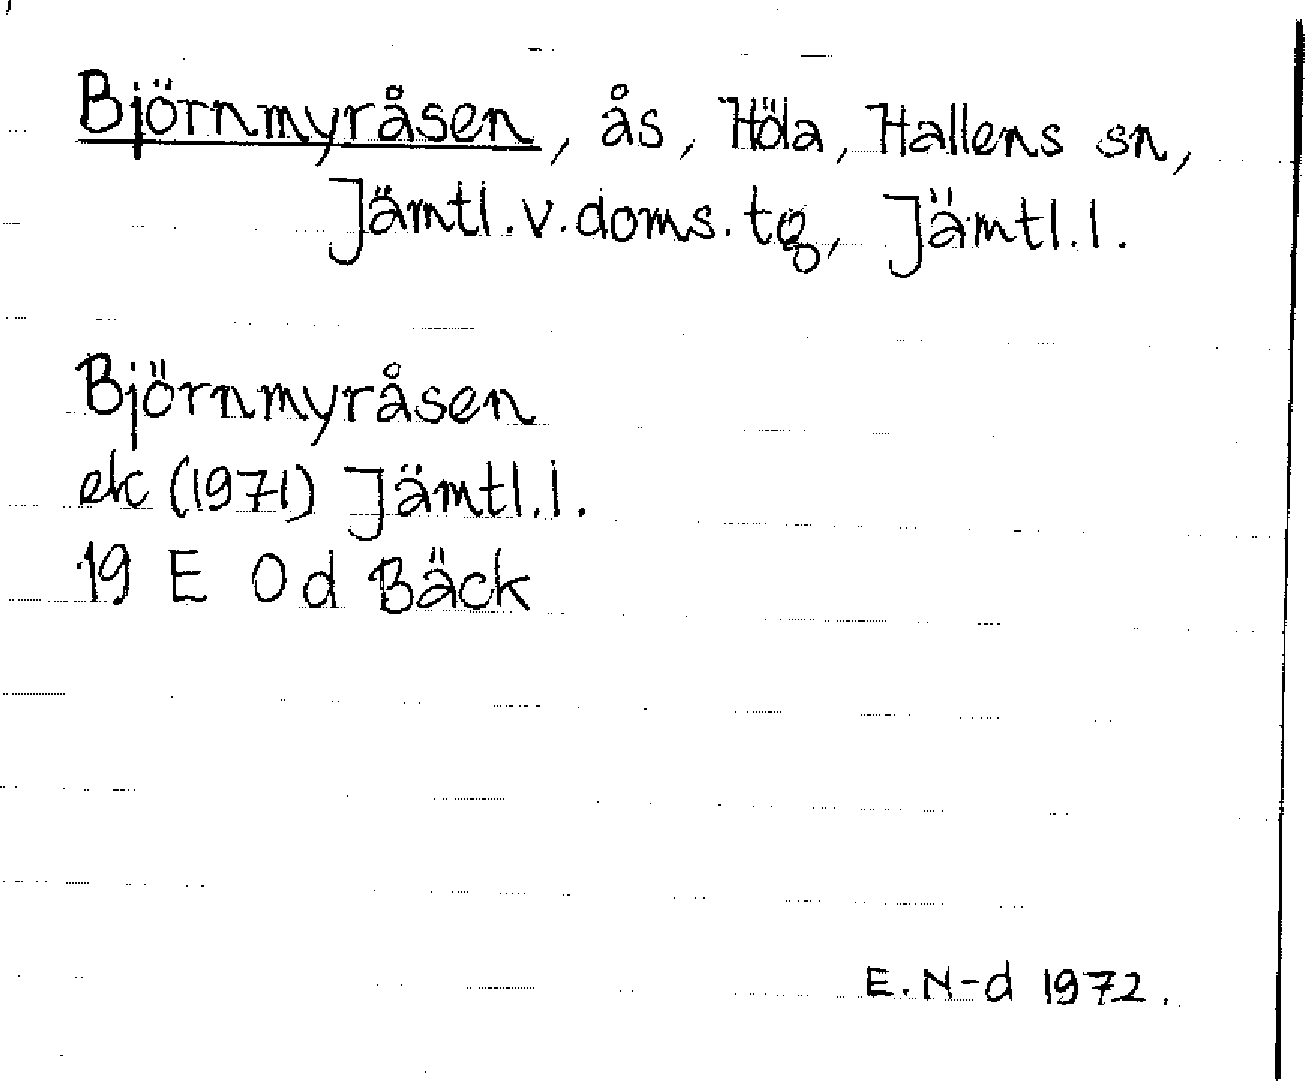 Björnmyråsen, ås, Höla, Hallens sn,
Jämtl.v.doms.tg, Jämtl.l.
Björnmyråsen
ek (1971) Jämtl.l.
19 E 0d Bäck
E.N-d 1972.